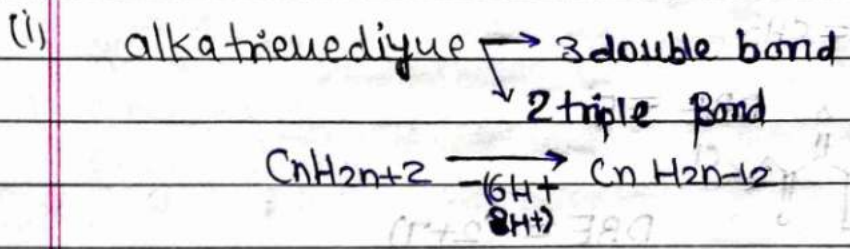 (i) alkatrienediyne → 3 double bond
↘ 2 triple Bond
CnH2n+2 → Cn H2n-12
-(6H+
8H+)